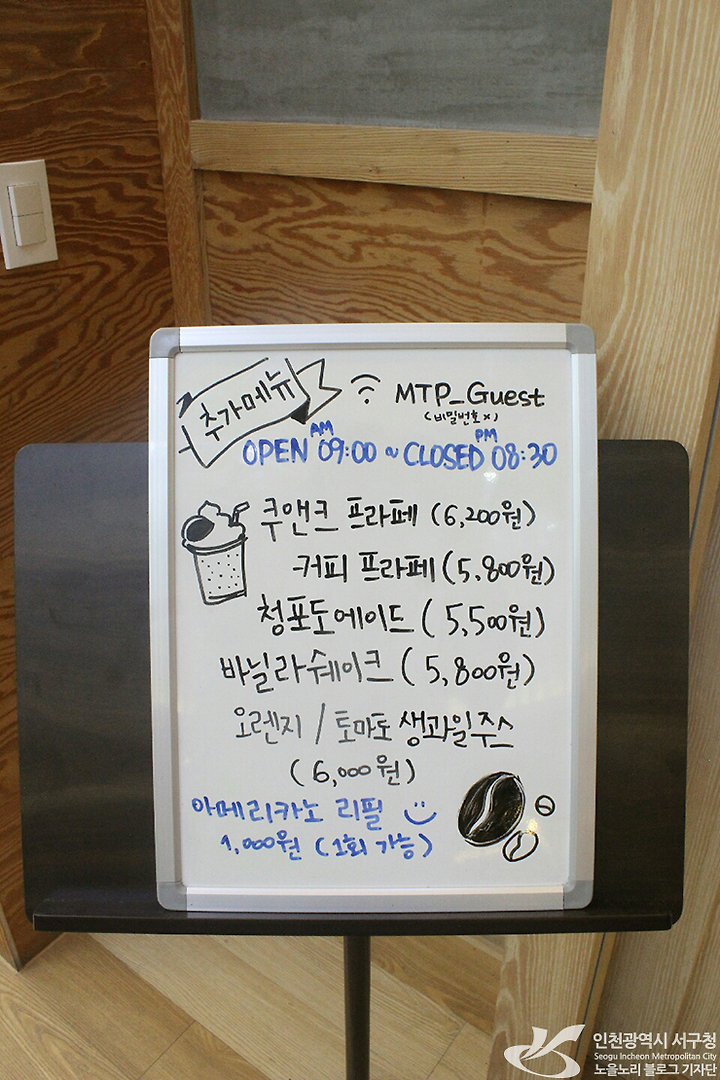 추가메뉴
MTP_Guest
(비밀번호 x)
AM PM
OPEN 09:00 ~ CLOSED 08:30
쿠앤크 프라페 (6,200원)
커피 프라페 (5,800원)
청포도에이드 (5,500원)
바닐라쉐이크 (5,800원)
오렌지 / 토마토 생과일주스
(6,000원)
아메리카노 리필
1,000원 (1회 가능)
인천광역시 서구청
Seogu Incheon Metropolitan City
노을노리 블로그 기자단